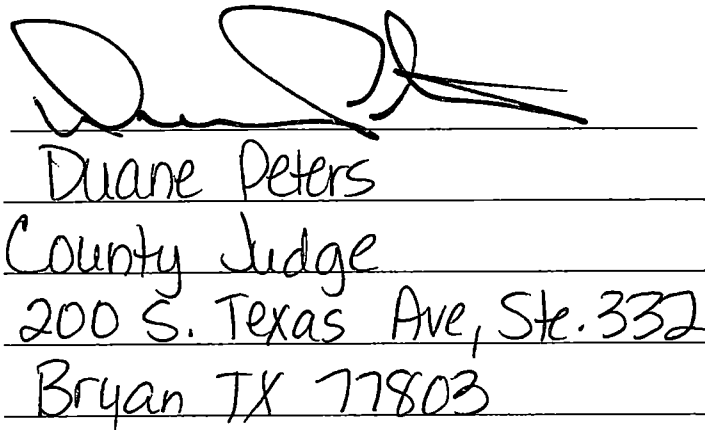 Duane Peters
County Judge
200 S. Texas Ave, Ste. 332
Bryan TX 77803